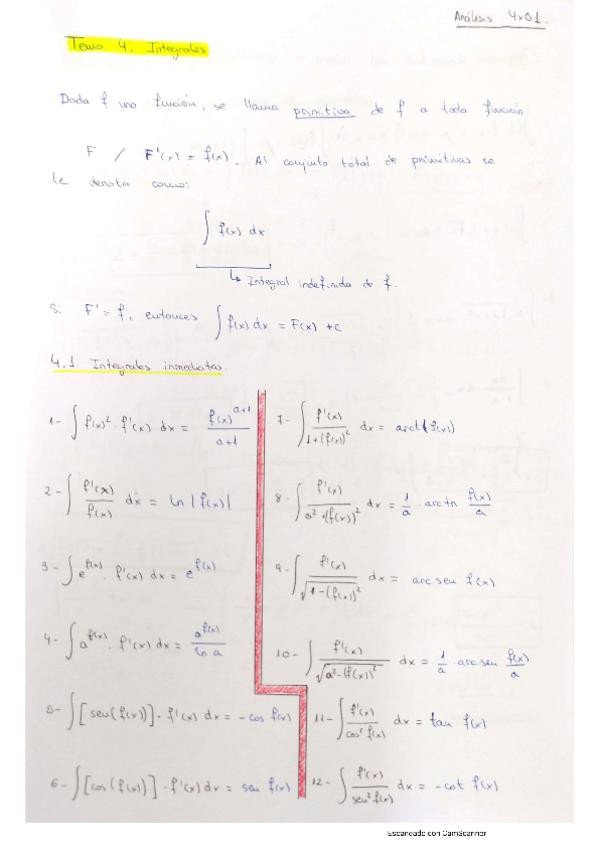 Análisis 4x01.
Tema 4. Integrales
Dada f una función, se llama primitiva de f a toda función
F / F'(x) = f(x). Al conjunto total de primitivas se
le denota como:
∫ f(x) dx
↳ Integral indefinida de f.
Si F' = f, entonces ∫ f(x) dx = F(x) + c
4.1. Integrales inmediatas.
1- ∫ f(x)² · f'(x) dx = f(x)^(a+1) / (a+1)
2- ∫ f'(x) / f(x) dx = ln |f(x)|
3- ∫ e^f(x) · f'(x) dx = e^f(x)
4- ∫ a^f(x) · f'(x) dx = a^f(x) / ln a
5- ∫ [sen(f(x))] · f'(x) dx = -cos f(x)
6- ∫ [cos(f(x))] · f'(x) dx = sen f(x)
7- ∫ f'(x) / 1+(f(x))² dx = arct(f(x))
8- ∫ f'(x) / a²+(f(x))² dx = 1/a · arctn f(x)/a
9- ∫ f'(x) / √(1-(f(x))²) dx = arc.sen f(x)
10- ∫ f'(x) / √(a²-(f(x))²) dx = 1/a · arcsen f(x)/a
11- ∫ f'(x) / cos² f(x) dx = tan f(x)
12- ∫ f'(x) / sen² f(x) dx = -cot f(x)
Escaneado con CamScanner